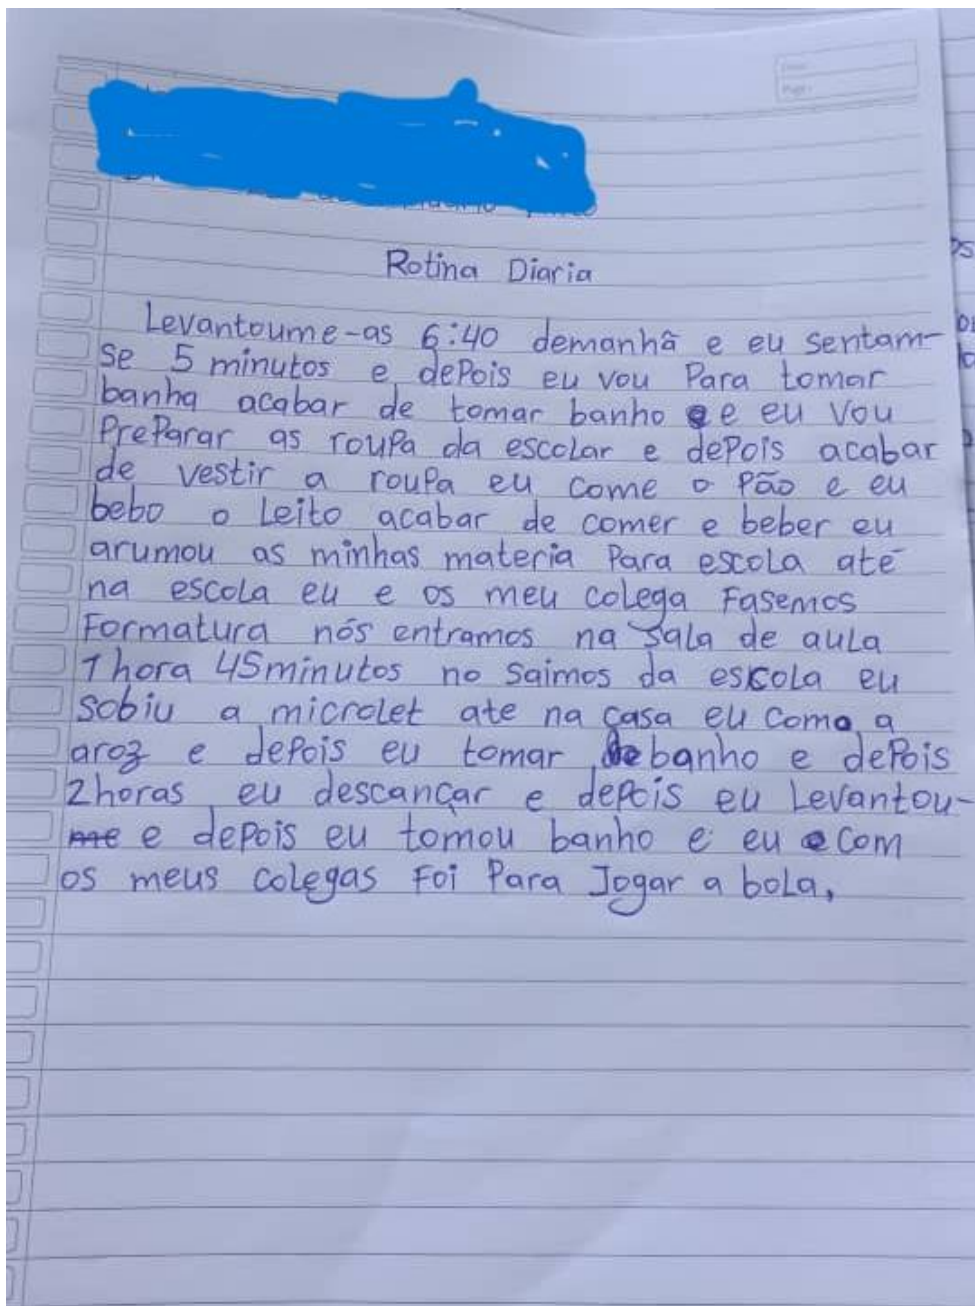 Rotina Diaria
Levantoume-as 6:40 demanhã e eu sentam-
se 5 minutos e depois eu vou Para tomar
banha acabar de tomar banho e eu vou
Preparar as roupa da escolar e depois acabar
de vestir a roupa eu come o Pão e eu
bebo o Leito acabar de comer e beber eu
arumou as minhas materia Para escola até
na escola eu e os meu colega Fasemos
Formatura nós entramos na sala de aula
1 hora 45 minutos no saimos da escola eu
sobiu a microlet ate na casa eu como a
aroz e depois eu tomar banho e depois
2 horas eu descançar e depois eu Levantou-
me e depois eu tomou banho e eu com
os meus colegas Foi Para Jogar a bola,